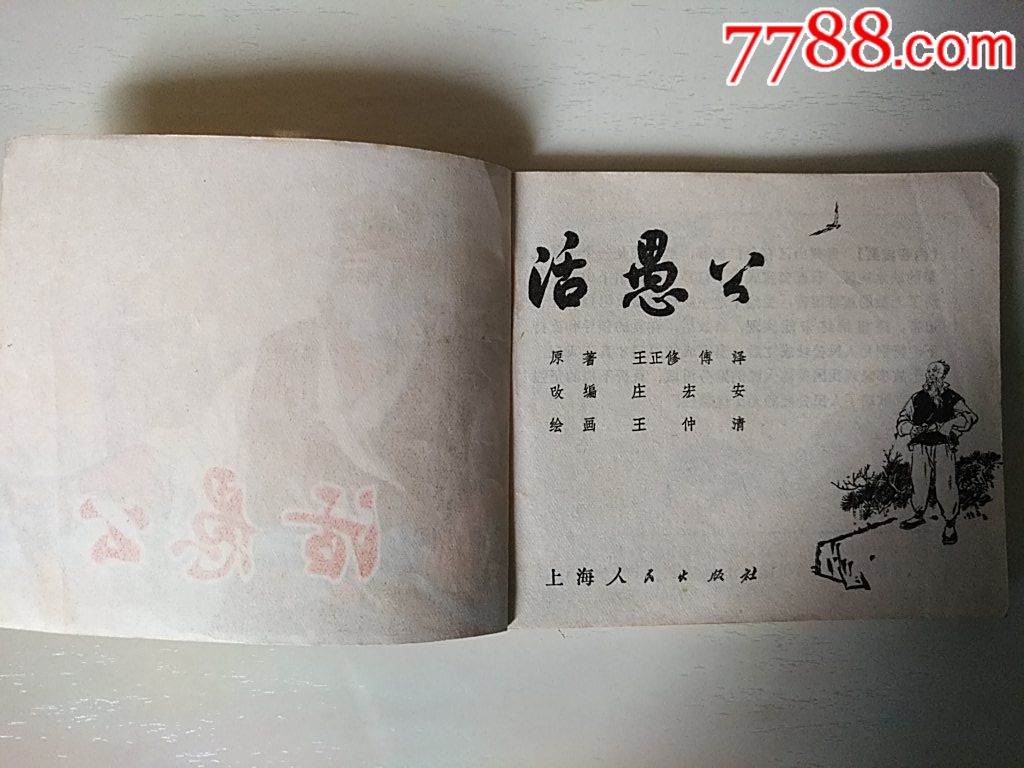 7788.com
活愚公
原著 王正修 傅泽
改编 庄宏安
绘画 王仲清
上海人民出版社
活愚公